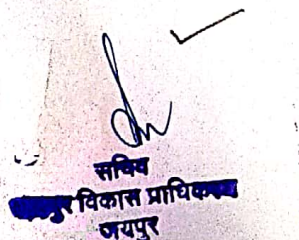 सचिव
विकास प्राधिकरण
जयपुर